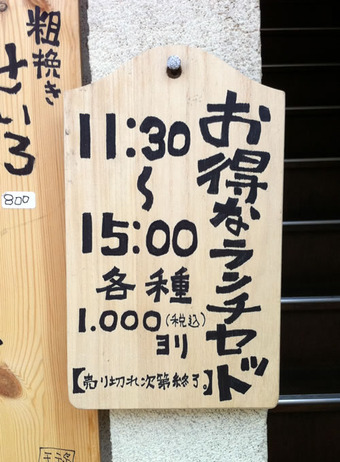 粗挽き
せいろ
800
お得なランチセット
11:30
〜
15:00
各種
1.000(税込)
ヨリ
【売り切れ次第終了。】